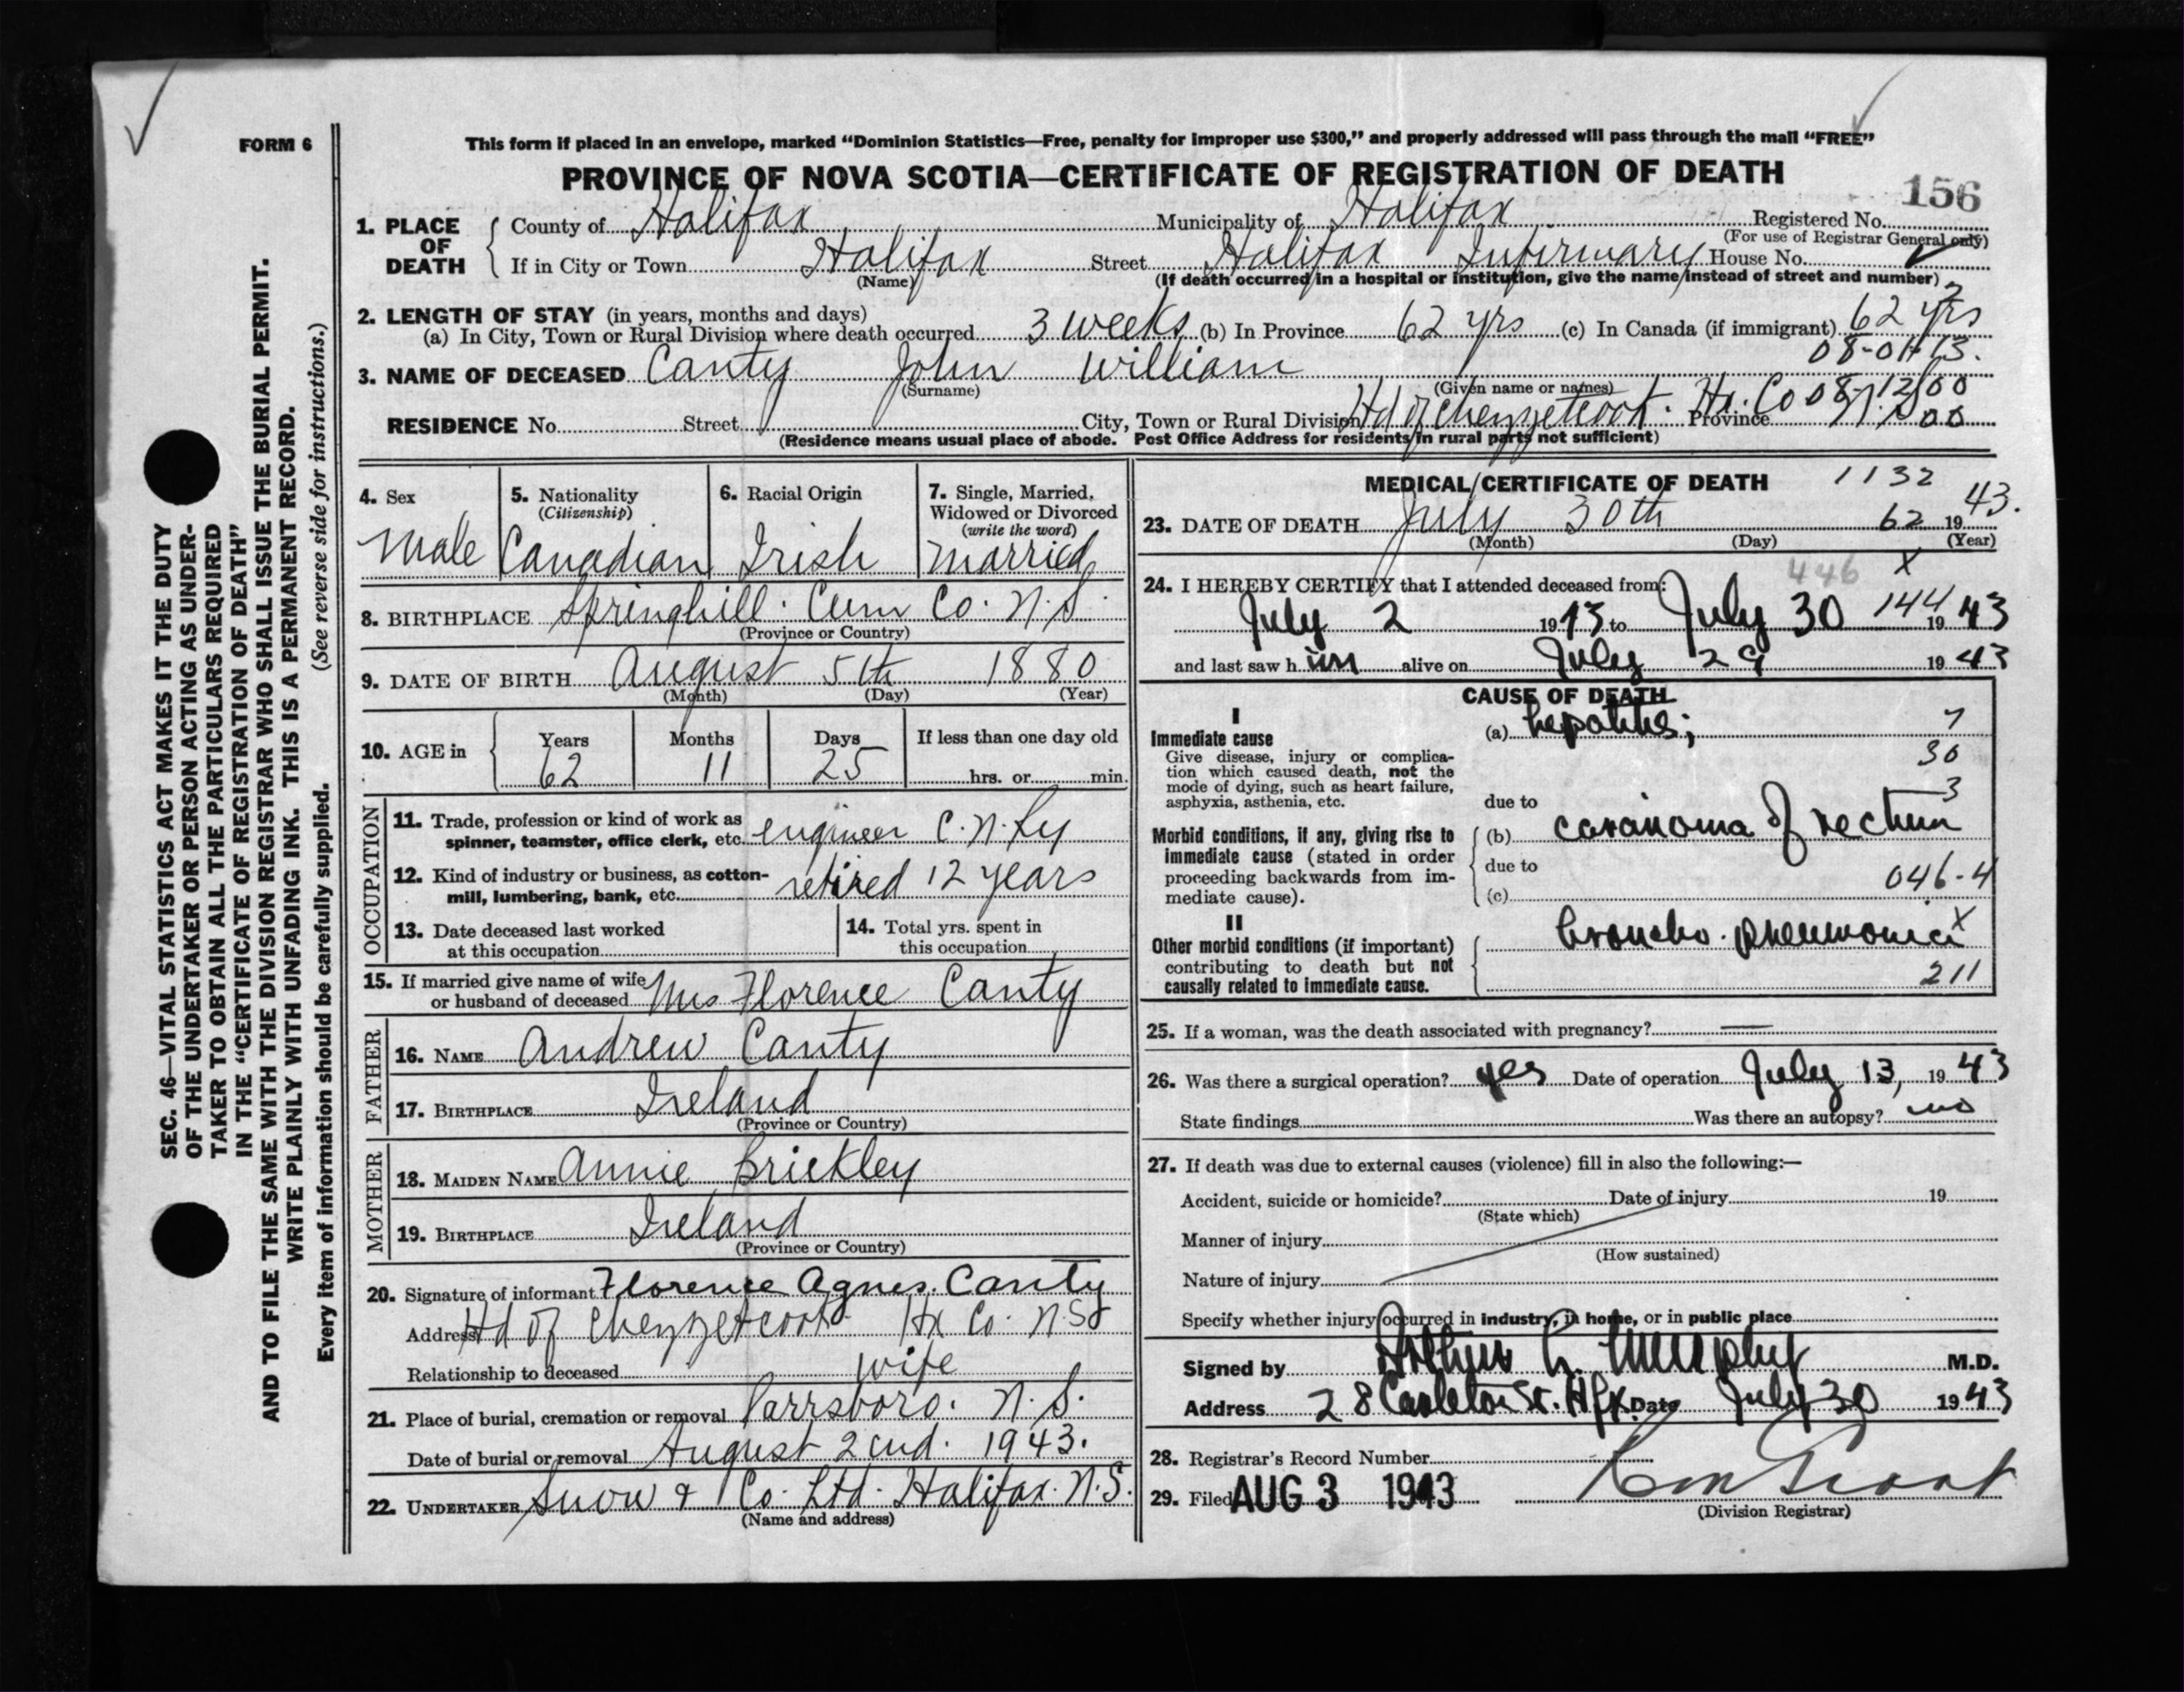 FORM 6
This form if placed in an envelope, marked "Dominion Statistics—Free, penalty for improper use $300," and properly addressed will pass through the mail "FREE"
PROVINCE OF NOVA SCOTIA—CERTIFICATE OF REGISTRATION OF DEATH
156
1. PLACE OF DEATH County of Halifax Municipality of Halifax Registered No.
(For use of Registrar General only)
If in City or Town Halifax Street Halifax Infirmary House No.
(Name) (If death occurred in a hospital or institution, give the name instead of street and number)
2. LENGTH OF STAY (in years, months and days)
(a) In City, Town or Rural Division where death occurred 3 weeks (b) In Province 62 yrs (c) In Canada (if immigrant) 62 yrs
3. NAME OF DECEASED Canty John William
(Surname) (Given name or names)
RESIDENCE No. Street City, Town or Rural Division Hd of Chezzetcook. Hx. Co Province N.S
(Residence means usual place of abode. Post Office Address for residents in rural parts not sufficient)
4. Sex Male
5. Nationality (Citizenship) Canadian
6. Racial Origin Irish
7. Single, Married, Widowed or Divorced (write the word) Married
8. BIRTHPLACE Springhill. Cum Co. N.S.
(Province or Country)
9. DATE OF BIRTH August 5th 1880
(Month) (Day) (Year)
10. AGE in Years 62 Months 11 Days 25 If less than one day old hrs. or min.
OCCUPATION
11. Trade, profession or kind of work as spinner, teamster, office clerk, etc. engineer C.N.Ry
12. Kind of industry or business, as cotton-mill, lumbering, bank, etc. retired 12 years
13. Date deceased last worked at this occupation
14. Total yrs. spent in this occupation
15. If married give name of wife or husband of deceased Mrs Florence Canty
FATHER
16. NAME Andrew Canty
17. BIRTHPLACE Ireland
(Province or Country)
MOTHER
18. MAIDEN NAME Annie Brickley
19. BIRTHPLACE Ireland
(Province or Country)
20. Signature of informant Florence Agnes. Canty
Address Hd of Chezzetcook Hx Co. N.S
Relationship to deceased wife
21. Place of burial, cremation or removal Parrsboro. N.S.
Date of burial or removal August 2nd. 1943.
22. UNDERTAKER Snow & Co. Ltd. Halifax. N.S.
(Name and address)
MEDICAL CERTIFICATE OF DEATH 1132
23. DATE OF DEATH July 30th 62 1943.
(Month) (Day) (Year)
446 X
24. I HEREBY CERTIFY that I attended deceased from:
July 2 1943 to July 30 144 1943
and last saw h im alive on July 29 1943
CAUSE OF DEATH
I
Immediate cause (a) hepatitis; 7
Give disease, injury or complication which caused death, not the mode of dying, such as heart failure, asphyxia, asthenia, etc. 30
due to 3
Morbid conditions, if any, giving rise to immediate cause (stated in order proceeding backwards from immediate cause).
(b) carcinoma of rectum
due to
(c) 046-4
II
Other morbid conditions (if important) contributing to death but not causally related to immediate cause.
broncho. pneumonia X
211
25. If a woman, was the death associated with pregnancy? —
26. Was there a surgical operation? yes Date of operation July 13, 1943
State findings Was there an autopsy? no
27. If death was due to external causes (violence) fill in also the following:—
Accident, suicide or homicide? Date of injury 19
(State which)
Manner of injury
(How sustained)
Nature of injury
Specify whether injury occurred in industry, in home, or in public place
Signed by Arthur L. Murphy M.D.
Address 28 Carleton St. Hfx Date July 30 1943
28. Registrar's Record Number
29. Filed AUG 3 1943
(Division Registrar)
SEC. 46—VITAL STATISTICS ACT MAKES IT THE DUTY
OF THE UNDERTAKER OR PERSON ACTING AS UNDER-
TAKER TO OBTAIN ALL THE PARTICULARS REQUIRED
IN THE "CERTIFICATE OF REGISTRATION OF DEATH"
AND TO FILE THE SAME WITH THE DIVISION REGISTRAR WHO SHALL ISSUE THE BURIAL PERMIT.
WRITE PLAINLY WITH UNFADING INK. THIS IS A PERMANENT RECORD.
Every item of information should be carefully supplied. (See reverse side for instructions.)